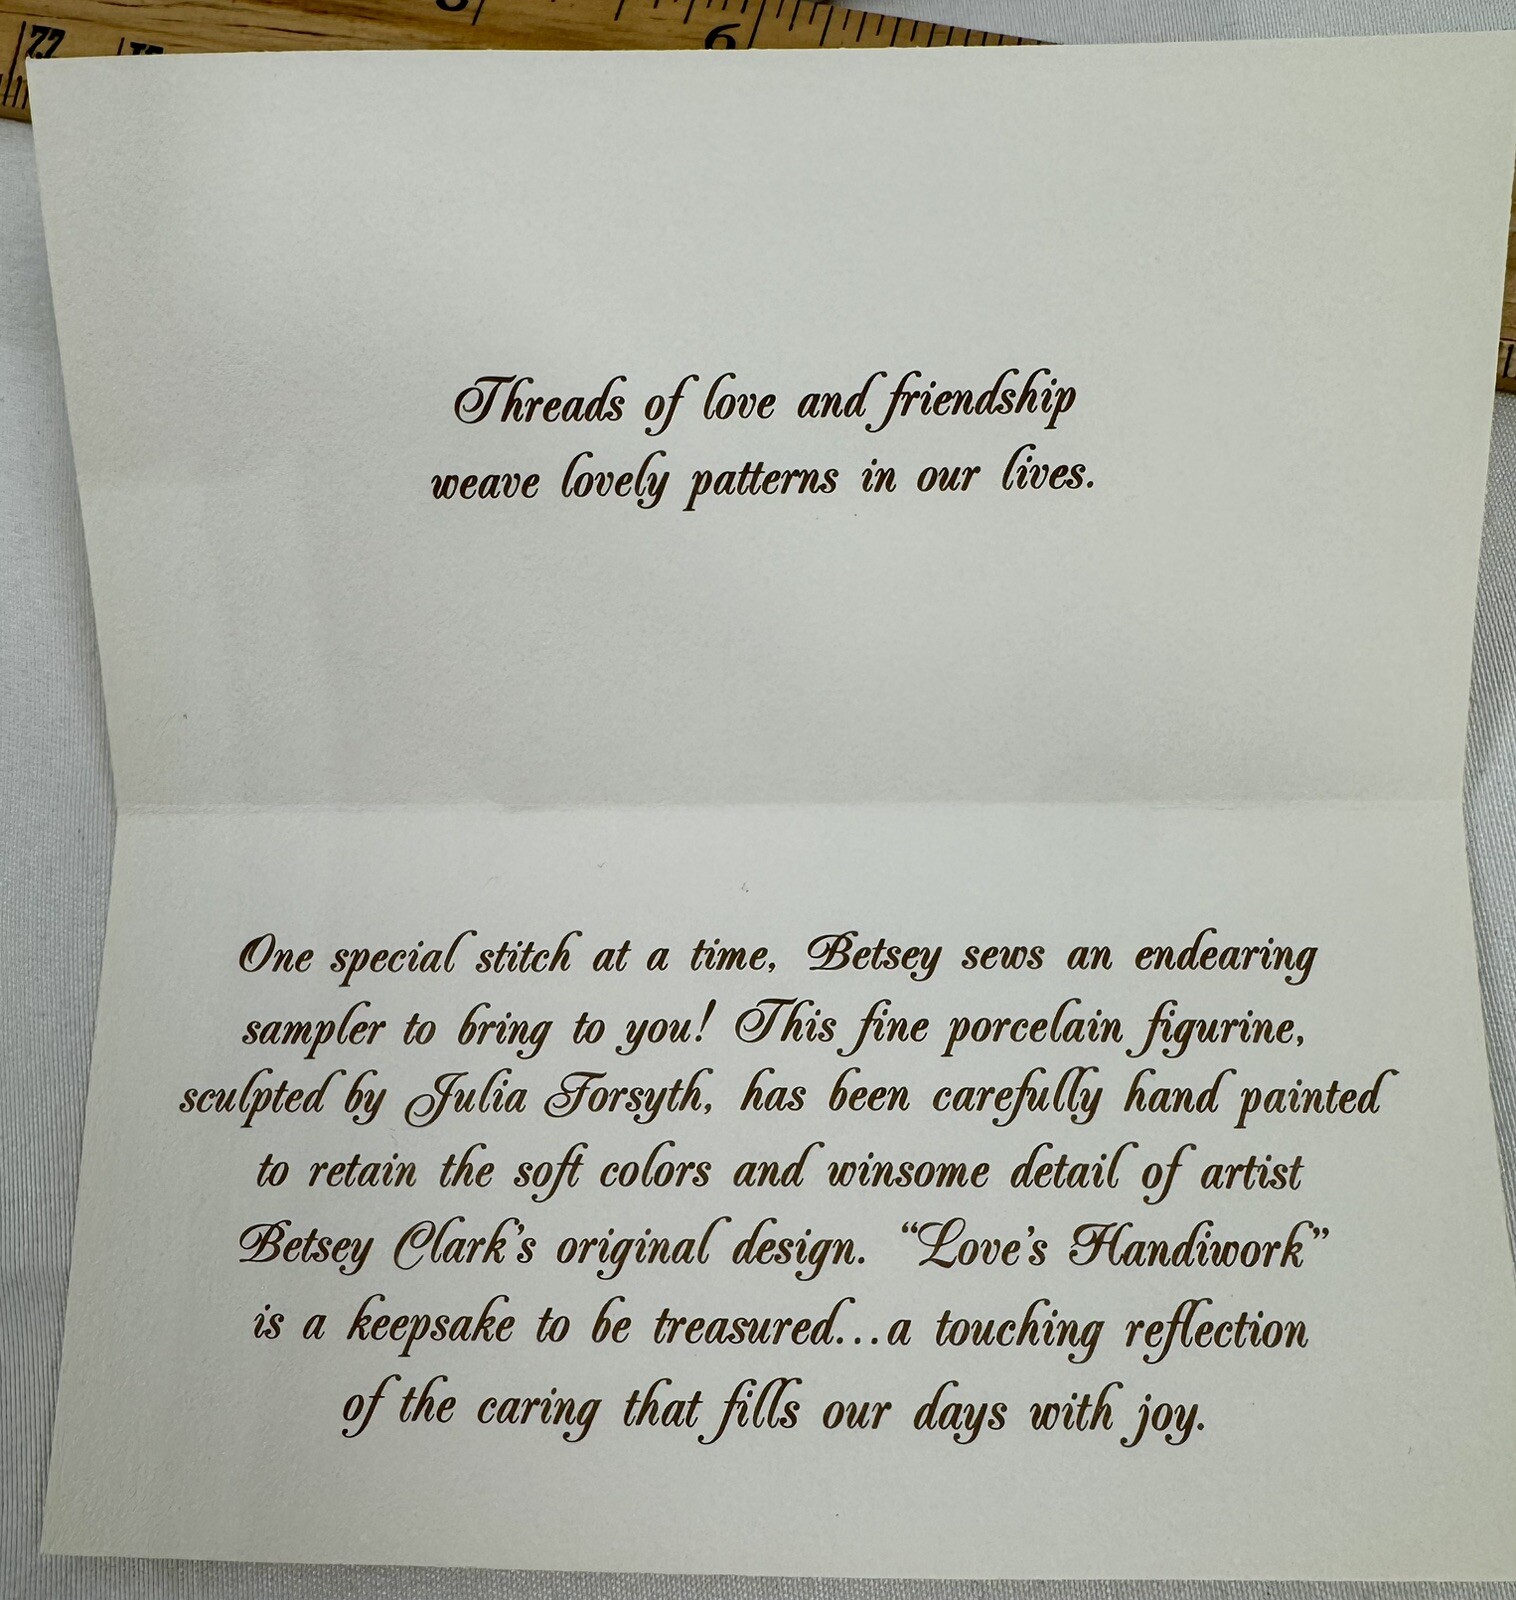 22
6
Threads of love and friendship
weave lovely patterns in our lives.
One special stitch at a time, Betsey sews an endearing
sampler to bring to you! This fine porcelain figurine,
sculpted by Julia Forsyth, has been carefully hand painted
to retain the soft colors and winsome detail of artist
Betsey Clark's original design. “Love's Handiwork”
is a keepsake to be treasured...a touching reflection
of the caring that fills our days with joy.